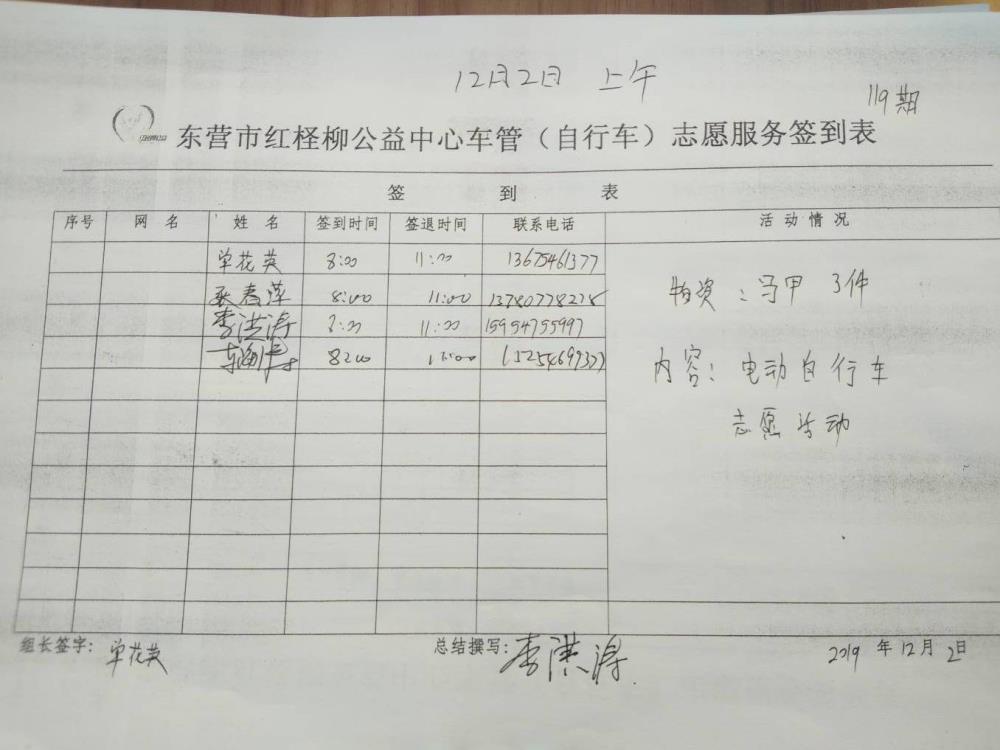 12月2日 上午
119期
东营市红柽柳公益中心车管（自行车）志愿服务签到表
签 到 表
序号 网 名 姓 名 签到时间 签退时间 联系电话 活动情况
单花英 8:00 11:00 13675461377
张春萍 8:00 11:00 13780778278
李洪涛 8:00 11:00 15954755997
8:00 11:00 15254699377
物资：马甲 3件
内容：电动自行车
志愿活动
组长签字：单花英 总结撰写：李洪涛 2019年12月2日